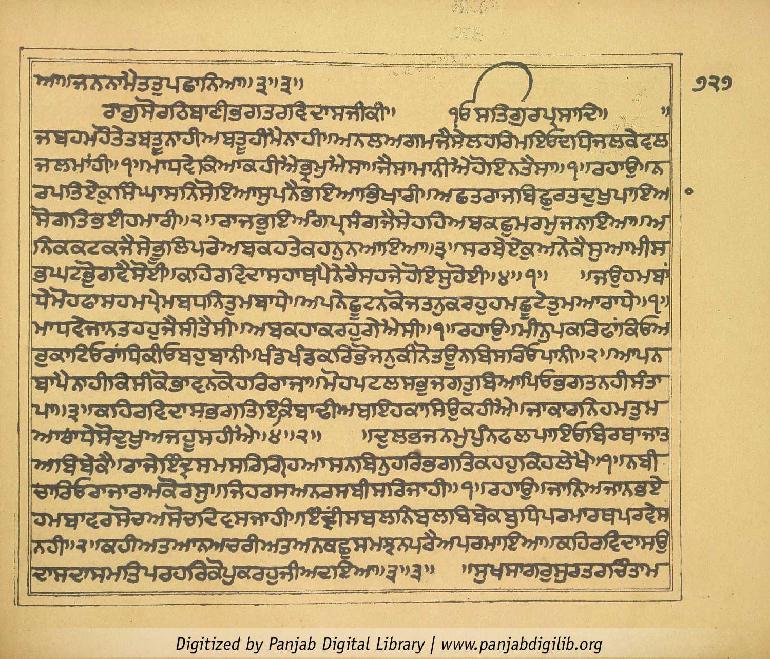 ਆ॥ਜਨਨਾਮੈਤਤੁਪਛਾਨਿਆ॥੩॥੩॥
੭੨੭
ਰਾਗੁਸੋਰਠਿਬਾਣੀਭਗਤਰਵਿਦਾਸਜੀਕੀ॥ ੴਸਤਿਗੁਰਪ੍ਰਸਾਦਿ॥ ॥
ਜਬਹਮਹੋਤੇਤਬਤੂਨਾਹੀਅਬਤੂਹੀਮੈਨਾਹੀ॥ਅਨਲਅਗਮਜੈਸੇਲਹਰਿਮਇਓਦਧਿਜਲਕੇਵਲ
ਜਲਮਾਂਹੀ॥੧॥ਮਾਧਵੇਕਿਆਕਹੀਐਭ੍ਰਮੁਐਸਾ॥ਜੈਸਾਮਾਨੀਐਹੋਇਨਤੈਸਾ॥੧॥ਰਹਾਉ॥ਨ
ਰਪਤਿਏਕੁਸਿੰਘਾਸਨਿਸੋਇਆਸੁਪਨੈਭਇਆਭਿਖਾਰੀ॥ਅਛਤਰਾਜਬਿਛੁਰਤਦੁਖੁਪਾਇਆ
ਸੋਗਤਿਭਈਹਮਾਰੀ॥੨॥ਰਾਜਭੁਇਅੰਗਪ੍ਰਸੰਗਜੈਸੇਹਹਿਅਬਕਛੁਮਰਮੁਜਨਾਇਆ॥ਅ
ਨਿਕਕਟਕਜੈਸੇਭੂਲਿਪਰੇਅਬਕਹਤੇਕਹਨੁਨਆਇਆ॥੩॥ਸਰਬੇਏਕੁਅਨੇਕੈਸੁਆਮੀਸ
ਭਘਟਭੋੁਗਵੈਸੋਈ॥ਕਹਿਰਵਿਦਾਸਹਾਥਪੈਨੇਰੈਸਹਜੇਹੋਇਸੁਹੋਈ॥੪॥੧॥ ॥ਜਉਹਮਬਾਂ
ਧੇਮੋਹਫਾਸਹਮਪ੍ਰੇਮਬਧਨਿਤੁਮਬਾਧੇ॥ਅਪਨੇਛੂਟਨਕੋਜਤਨੁਕਰਹੁਹਮਛੂਟੇਤੁਮਆਰਾਧੇ॥੧॥
ਮਾਧਵੇਜਾਨਤਹਹੁਜੈਸੀਤੈਸੀ॥ਅਬਕਹਾਕਰਹੁਗੇਐਸੀ॥੧॥ਰਹਾਉ॥ਮੀਨੁਪਕਰਿਫਾਂਕਿਓਅ
ਰੁਕਾਟਿਓਰਾਂਧਿਕੀਓਬਹੁਬਾਨੀ॥ਖੰਡਖੰਡਕਰਿਭੋਜਨੁਕੀਨੋਤਊਨਬਿਸਰਿਓਪਾਨੀ॥੨॥ਆਪਨ
ਬਾਪੈਨਾਹੀਕਿਸੀਕੋਭਾਵਨਕੋਹਰਿਰਾਜਾ॥ਮੋਹਪਟਲਸਭੁਜਗਤੁਬਿਆਪਿਓਭਗਤਨਹੀਸੰਤਾ
ਪਾ॥੩॥ਕਹਿਰਵਿਦਾਸਭਗਤਿਇਕਬਾਢੀਅਬਇਹਕਾਸਿਉਕਹੀਐ॥ਜਾਕਾਰਨਿਹਮਤੁਮ
ਆਰਾਧੇਸੋਦੁਖੁਅਜਹੂਸਹੀਐ॥੪॥੨॥ ॥ਦੁਲਭਜਨਮੁਪੁੰਨਫਲਪਾਇਓਬਿਰਥਾਜਾਤ
ਅਬਿਬੇਕੈ॥ਰਾਜੇਇੰਦ੍ਰਸਮਸਰਿਗ੍ਰਿਹਆਸਨਬਿਨੁਹਰਿਭਗਤਿਕਹਹੁਕਿਹਲੇਖੇ॥੧॥ਨਬੀ
ਚਾਰਿਓਰਾਜਾਰਾਮਕੋਰਸੁ॥ਜਿਹਰਸਅਨਰਸਬੀਸਰਿਜਾਹੀ॥੧॥ਰਹਾਉ॥ਜਾਨਿਅਜਾਨਭਏ
ਹਮਬਾਵਰਸੋਚਅਸੋਚਦਿਵਸਜਾਹੀ॥ਇੰਦ੍ਰੀਸਬਲਨਿਬਲਬਿਬੇਕਬੁਧਿਪਰਮਾਰਥਪਰਵੇਸ
ਨਹੀ॥੨॥ਕਹੀਅਤਆਨਅਚਰੀਅਤਅਨਕਛੁਸਮਝਨਪਰੈਅਪਰਮਾਇਆ॥ਕਹਿਰਵਿਦਾਸਉ
ਦਾਸਦਾਸਮਤਿਪਰਹਰਿਕੋਪੁਕਰਹੁਜੀਅਦਇਆ॥੩॥੩॥ ॥ਸੁਖਸਾਗਰੁਸੁਰਤਰਚਿੰਤਾਮ
Digitized by Panjab Digital Library | www.panjabdigilib.org